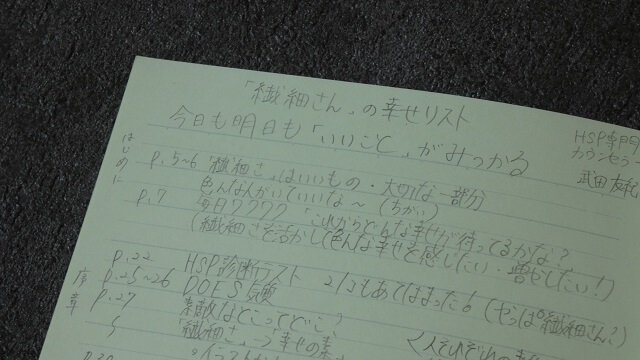 「繊細さん」の幸せリスト
今日も明日も「いいこと」がみつかる
HSP専門
カウンセラー
武田友紀
はじめに
P.5~6 「繊細さ」はいいもの・大切な一部分
色んな人がいていいな~(ちがい)
P.7 毎日ワクワク「これからどんな幸せが待ってるかな?
(繊細さを活かし色んな幸せを感じたい・増やしたい!)
序章
P.22 HSP診断テスト 21こもあてはまった。(やっぱ繊細さん?)
P.25~26 DOES気質
P.27 素敵なとこってどこ?
「繊細さ」→幸せの